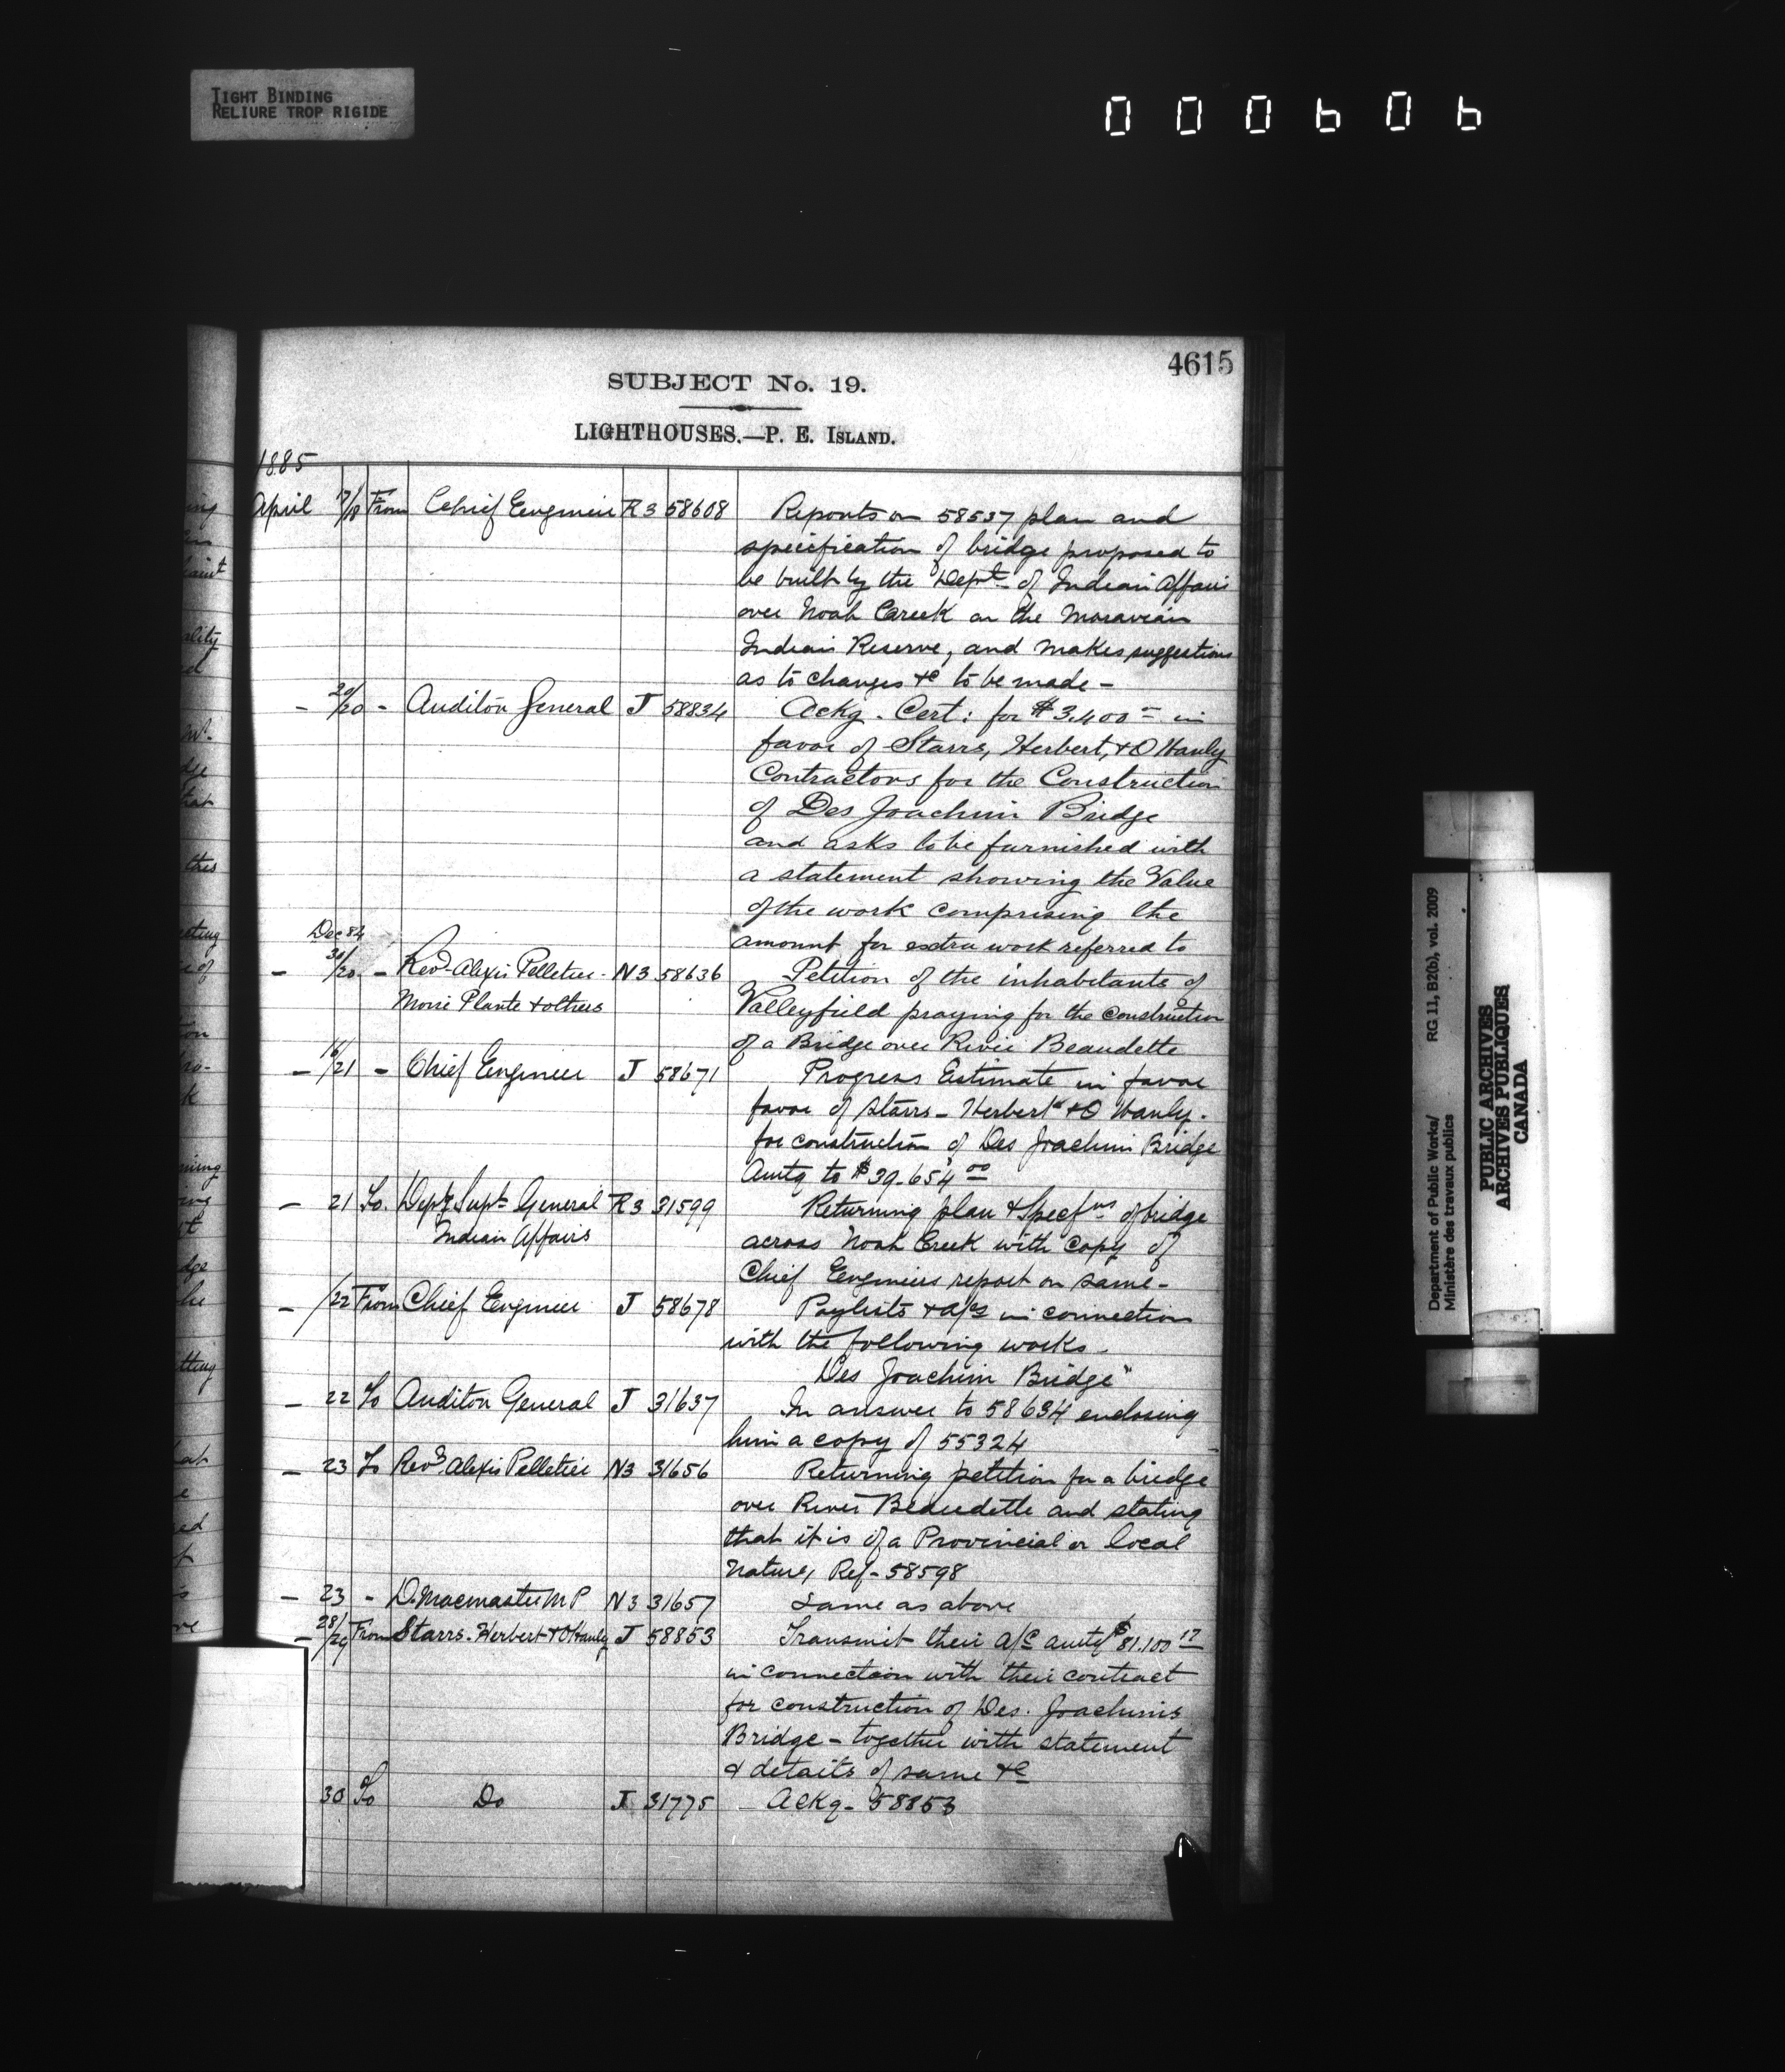 TIGHT BINDING
RELIURE TROP RIGIDE
000606
4615
SUBJECT No. 19.
LIGHTHOUSES.—P. E. ISLAND.
1885
April 17/18 From Chief Engineer R3 58608 Reports on 58537 plan and
specification of bridge proposed to
be built by the Dept of Indian Affairs
over Noah Creek on the Moravian
Indian Reserve, and makes suggestions
as to changes &c to be made —
– 20/20 – Auditor General J 58834 Ackg. Cert: for $3.400 — in
favor of Starrs, Herbert, & O'Hanly
Contractors for the Construction
of Des Joachim Bridge
and asks to be furnished with
a statement showing the Value
of the work comprising the
amount for extra work referred to
Dec 84
– 30/20 – Revd Alexis Pelletier – N3 58636 Petition of the inhabitants of
Plante & others Valleyfield praying for the construction
of a Bridge over River Beaudette
– 16/21 – Chief Engineer J 58671 Progress Estimate in favor
favor of Starrs – Herbert & O'Hanly.
for construction of Des Joachim Bridge
Amtg to $39.654 00
– 21 To. Depty Supt General R3 31599 Returning plan & Specfns of bridge
Indian Affairs across Noah Creek with copy of
Chief Engineers report on same –
– /22 From Chief Engineer J 58678 Paylists & a/cs in connection
with the following works –
Des Joachim Bridge"
– 22 To Auditor General J 31637 In answer to 58634 enclosing
him a copy of 55324
– 23 To Revd Alexis Pelletier N3 31656 Returning petition for a bridge
over River Beaudette and stating
that it is of a Provincial or local
nature, Ref – 58598
– 23 – D. Macmaster M P N3 31657 Same as above
– 28/29 From Starrs. Herbert & O'Hanly J 58853 Transmit their a/c amtg $81.100 17
in connection with their contract
for construction of Des. Joachims
Bridge – together with statement
& details of same &c
30 To Do J 31775 – Ackg – 58853
Department of Public Works/ RG 11, B2(b), vol. 2009
Ministère des travaux publics
PUBLIC ARCHIVES
ARCHIVES PUBLIQUES
CANADA